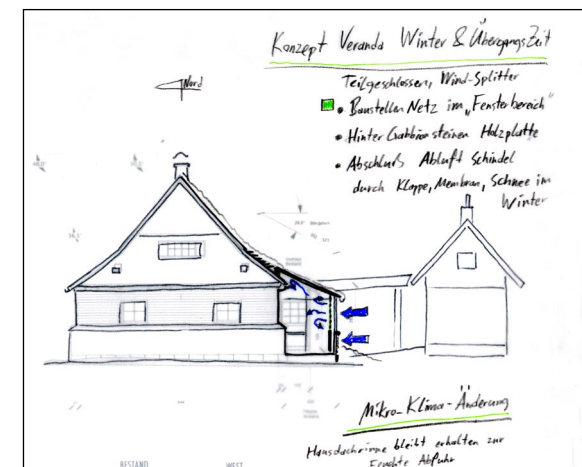 Konzept Veranda Winter & ÜbergangsZeit
Nord
Teilgeschlossen, Wind-Splitter
• Baustellen Netz im „Fensterbereich"
• Hinter Gabbionsteinen Holzplatte
• Abschluß Abluft Schindel
durch Klappe, Membran, Schnee im
Winter
Mikro-Klima-Änderung
Hausdachrinne bleibt erhalten zur
Feuchte Abfuhr
BESTAND WEST